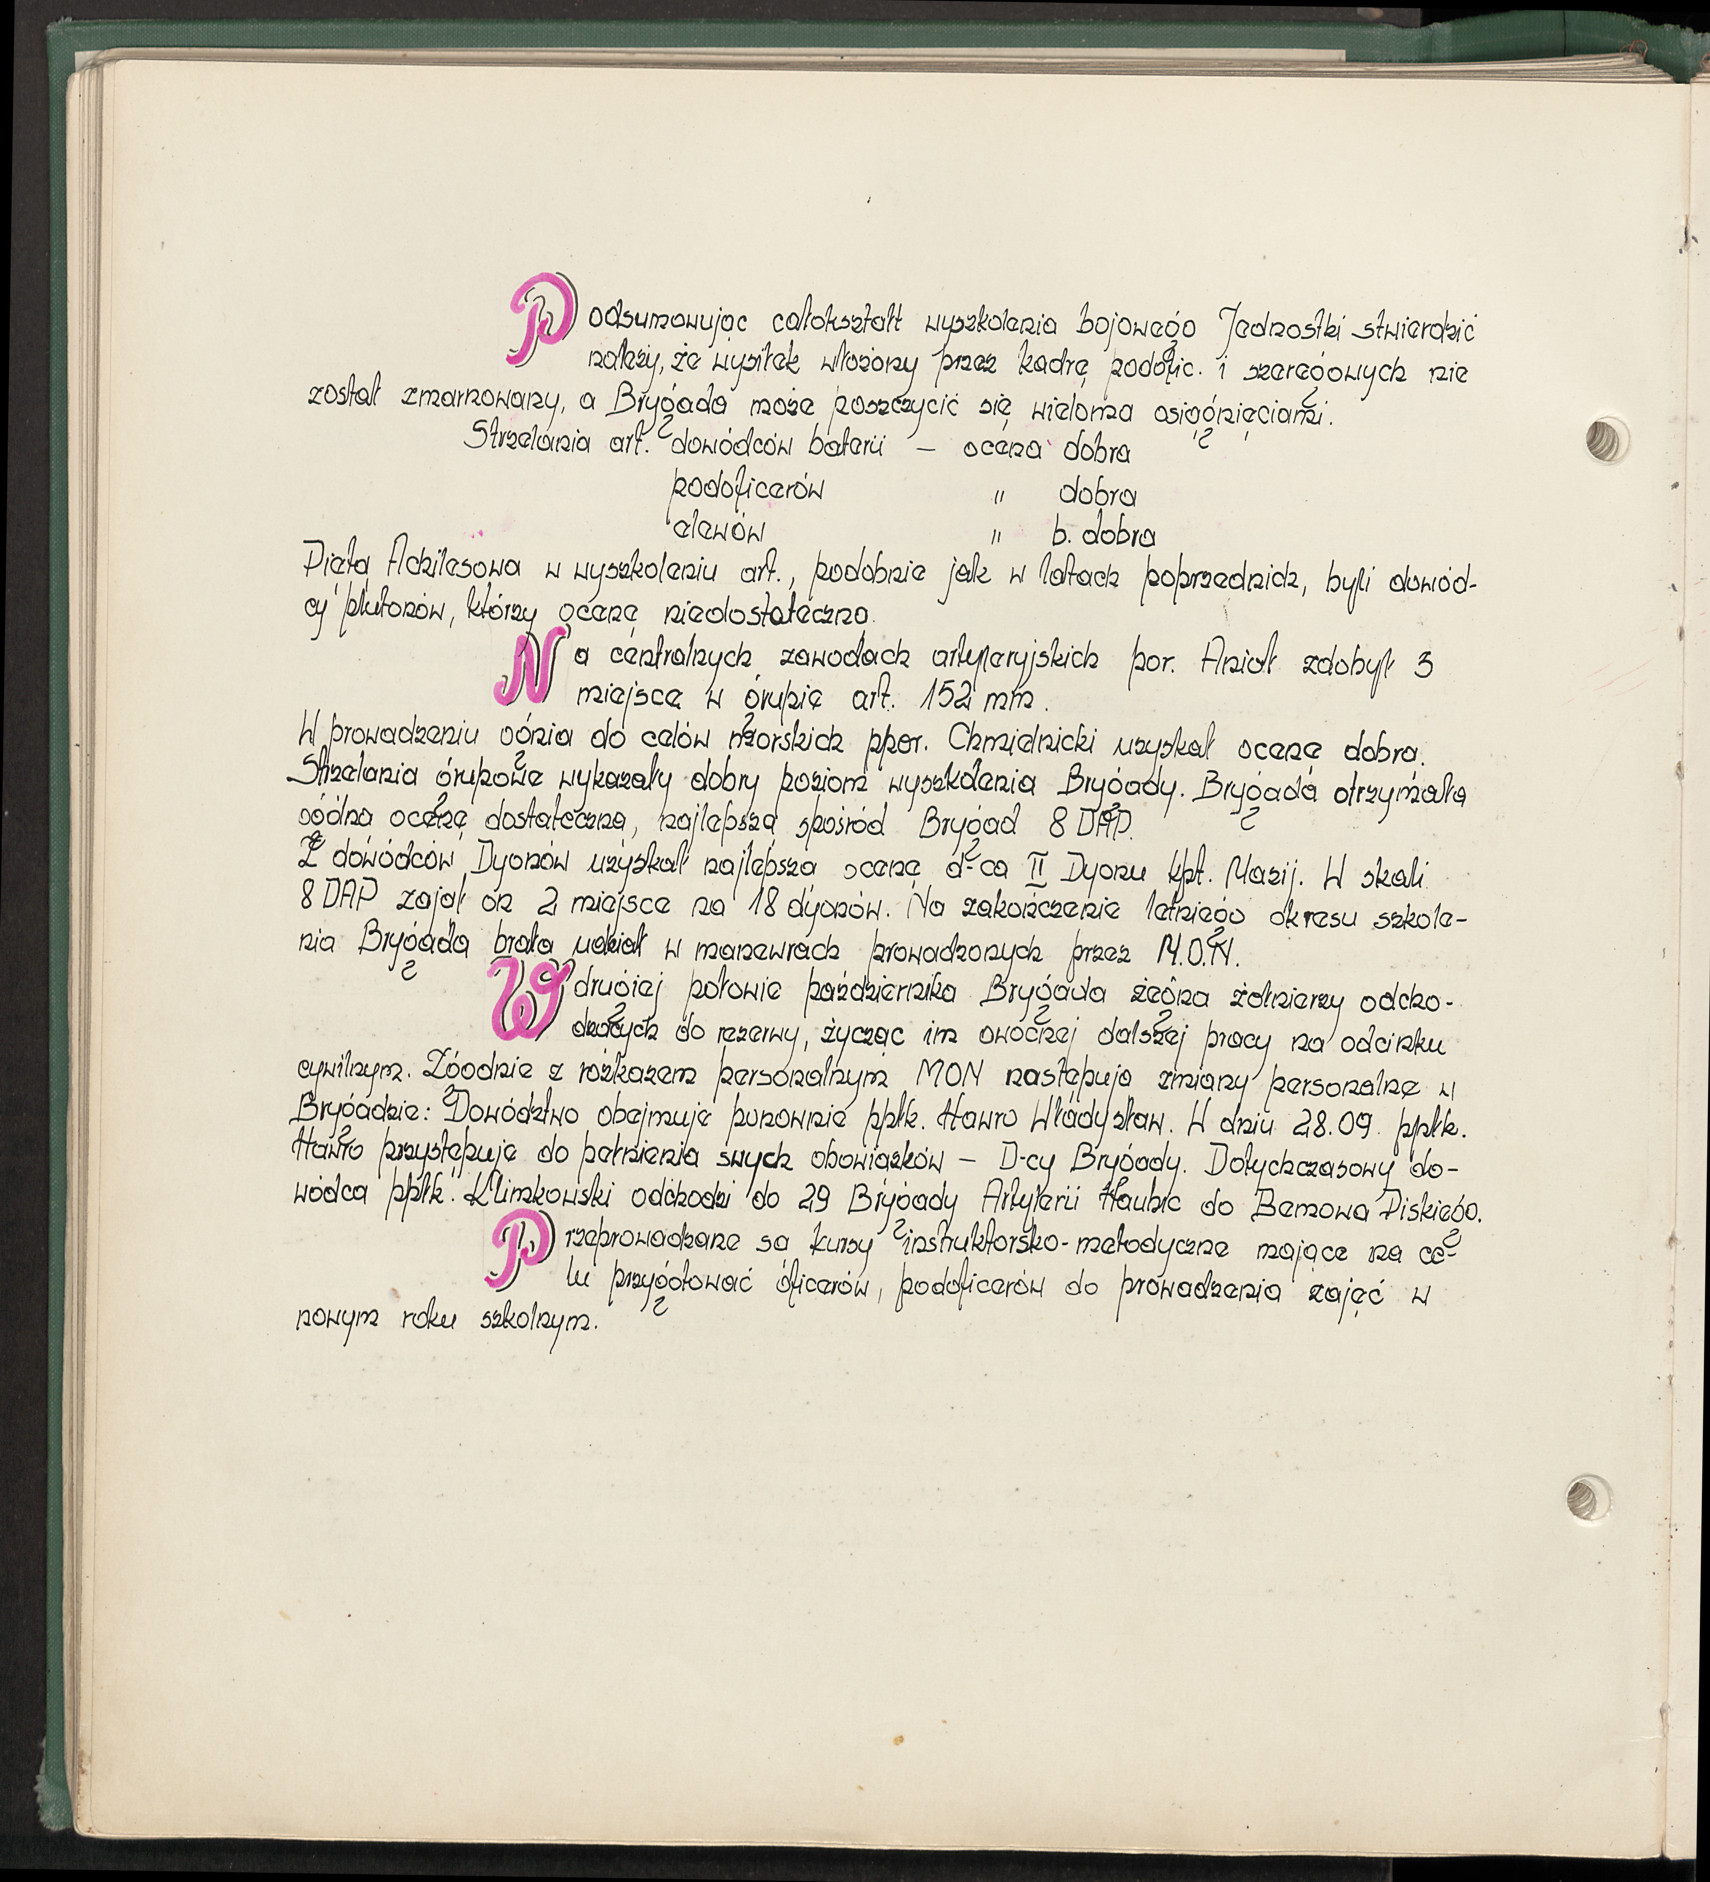 Podsumowując całokształt wyszkolenia bojowego Jednostki stwierdzić
należy, że wysiłek włożony przez kadrę podofic. i szeregowych nie
został zmarnowany, a Brygada może poszczycić się wieloma osiągnięciami.
Strzelania art. dowódców baterii – ocena dobra
podoficerów " dobra
elewów " b. dobra
Piętą Achilesową w wyszkoleniu art., podobnie jak w latach poprzednich, byli dowód-
cy plutonów, którzy ocenę niedostateczną.
Na centralnych zawodach artyleryjskich por. Anioł zdobył 3
miejsce w grupie art. 152 mm.
W prowadzeniu ognia do celów morskich ppor. Chmielnicki uzyskał ocenę dobrą.
Strzelania grupowe wykazały dobry poziom wyszkolenia Brygady. Brygada otrzymała
ogólną ocenę dostateczną, najlepszą spośród Brygad 8 DAP.
Z dowódców Dyonów uzyskał najlepszą ocenę d-ca II Dyonu kpt. Masij. W skali
8 DAP zajął on 2 miejsce na 18 dyonów. Na zakończenie letniego okresu szkole-
nia Brygada brała udział w manewrach prowadzonych przez M.O.N.
W drugiej połowie października Brygada żegna żołnierzy odcho-
dzących do rezerwy, życząc im owocnej dalszej pracy na odcinku
cywilnym. Zgodnie z rozkazem personalnym MON następują zmiany personalne w
Brygadzie: Dowództwo obejmuje ponownie ppłk. Hawro Władysław. W dniu 28.09. ppłk.
Hawro przystępuje do pełnienia swych obowiązków – D-cy Brygady. Dotychczasowy do-
wódca ppłk. Klimkowski odchodzi do 29 Brygady Artylerii Haubic do Bemowa Piskiego.
Przeprowadzane są kursy instruktorsko-metodyczne mające na ce-
lu przygotować oficerów, podoficerów do prowadzenia zajęć w
nowym roku szkolnym.